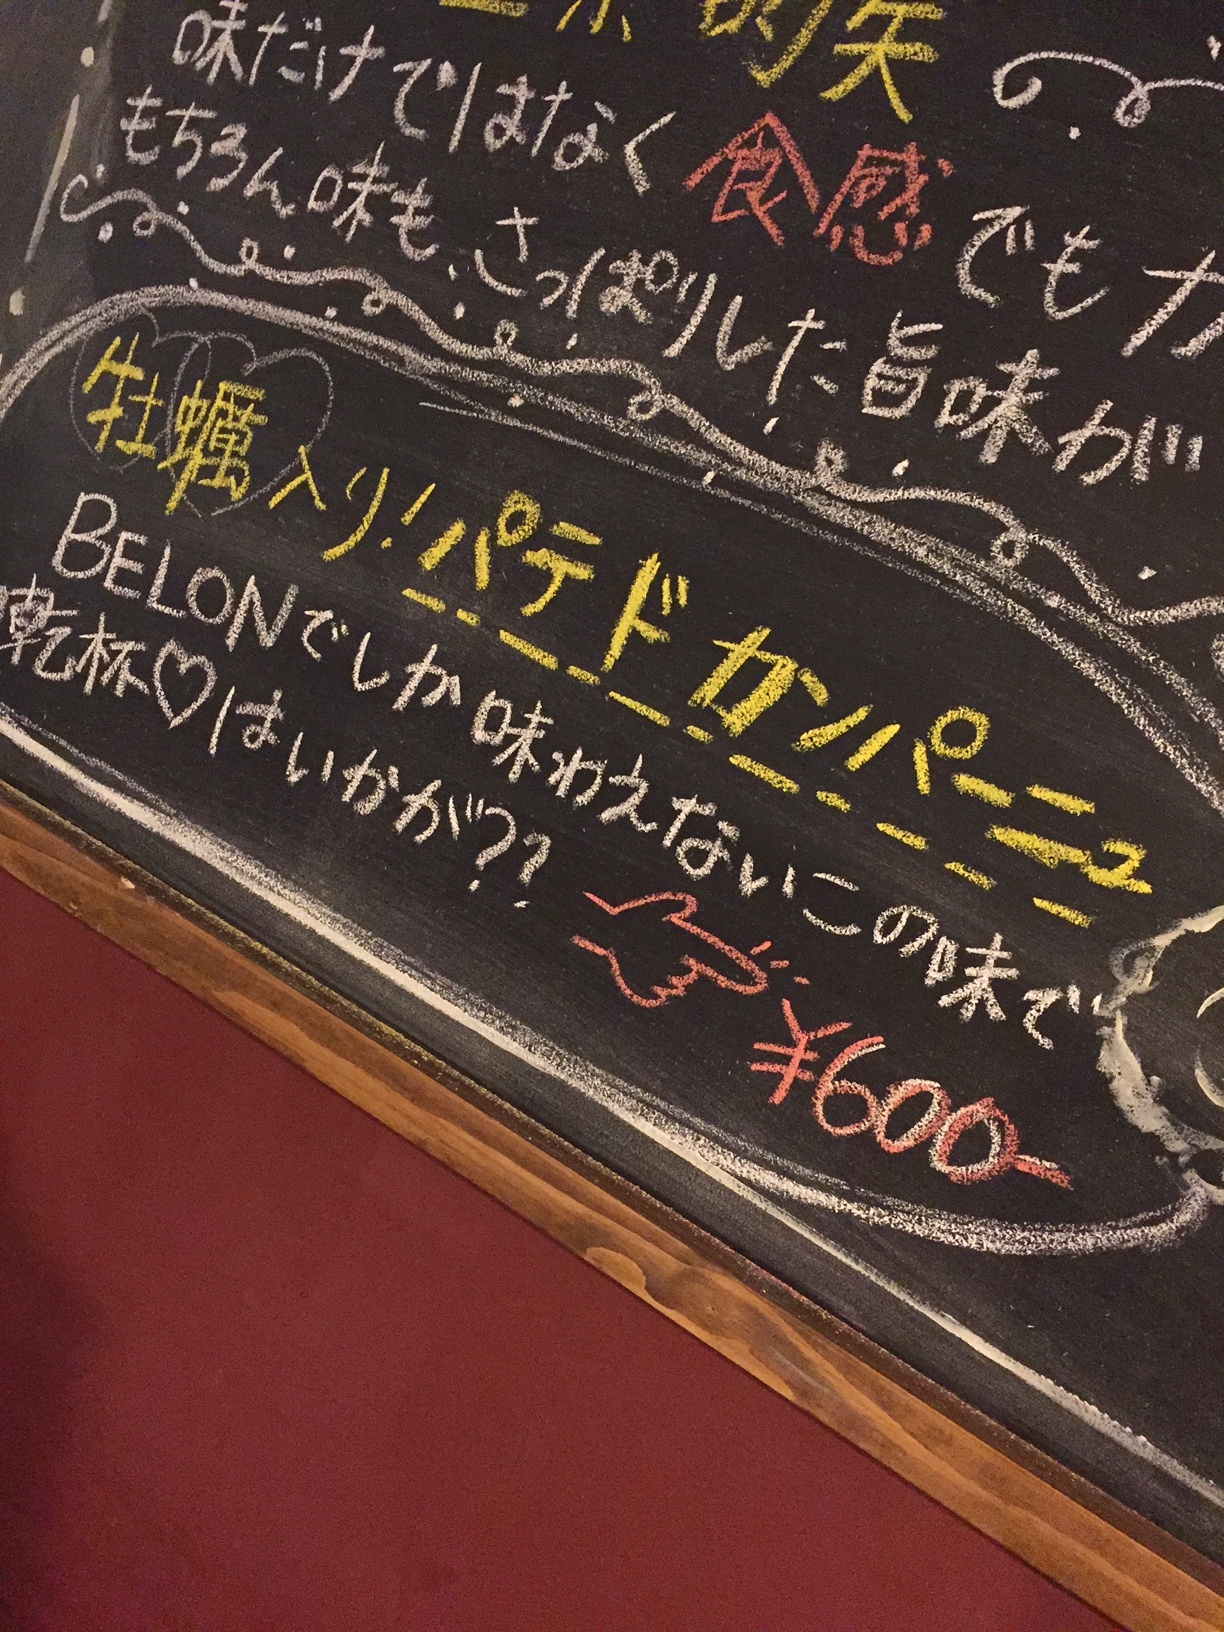 味だけではなく食感でも
もちろん味も、さっぱりした旨味が
牡蠣入り！パテドカンパーニュ
BELONでしか味わえないこの味で
乾杯♡はいかが??
¥600-